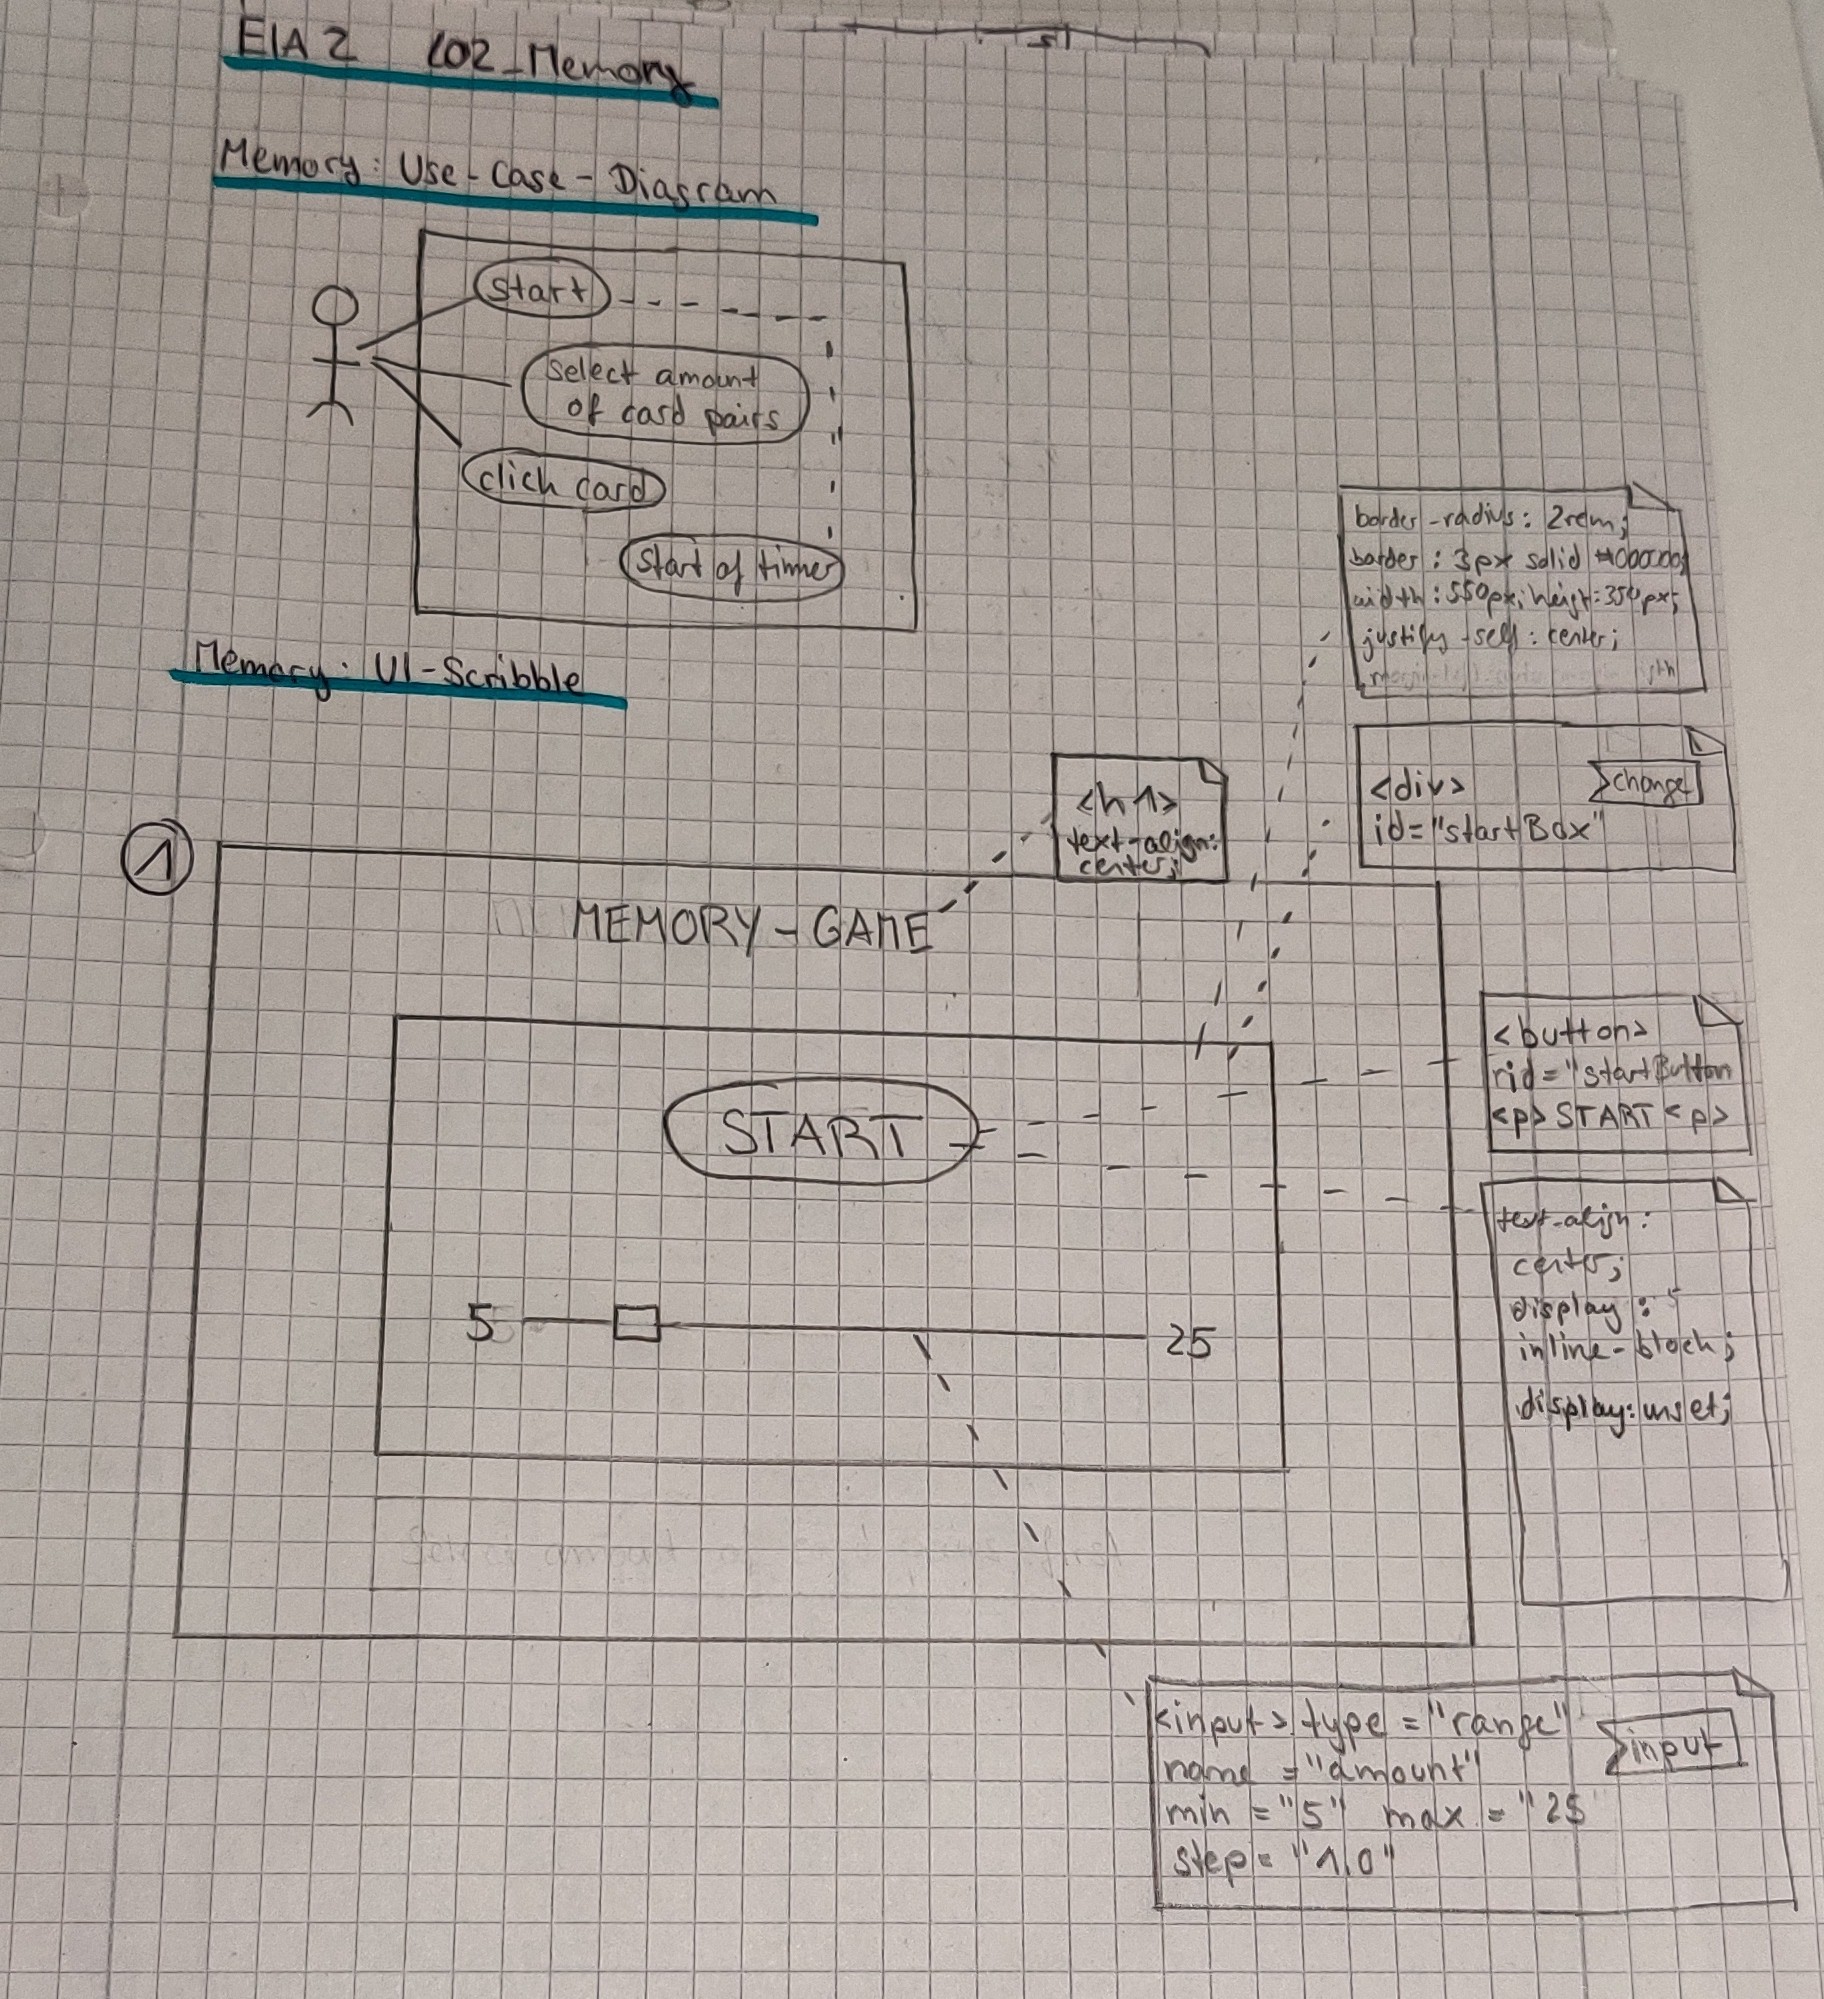 EIA 2 L02_Memory
Memory: Use-Case-Diagram
start
select amount
of card pairs
click card
start of timer
Memory: UI-Scribble
border-radius: 2rem;
border: 3px solid #000000;
width: 550px; height: 350px;
justify-self: center;
<div>
change
id="startBox"
<h1>
text-align:
center;
1
MEMORY-GAME
<button>
id="startButton
<p> START <p>
START
text-align:
center;
display:
inline-block;
display: unset;
5
25
Select amount of card
<input> type="range"
input
name="amount"
min="5" max="25
step="1.0"